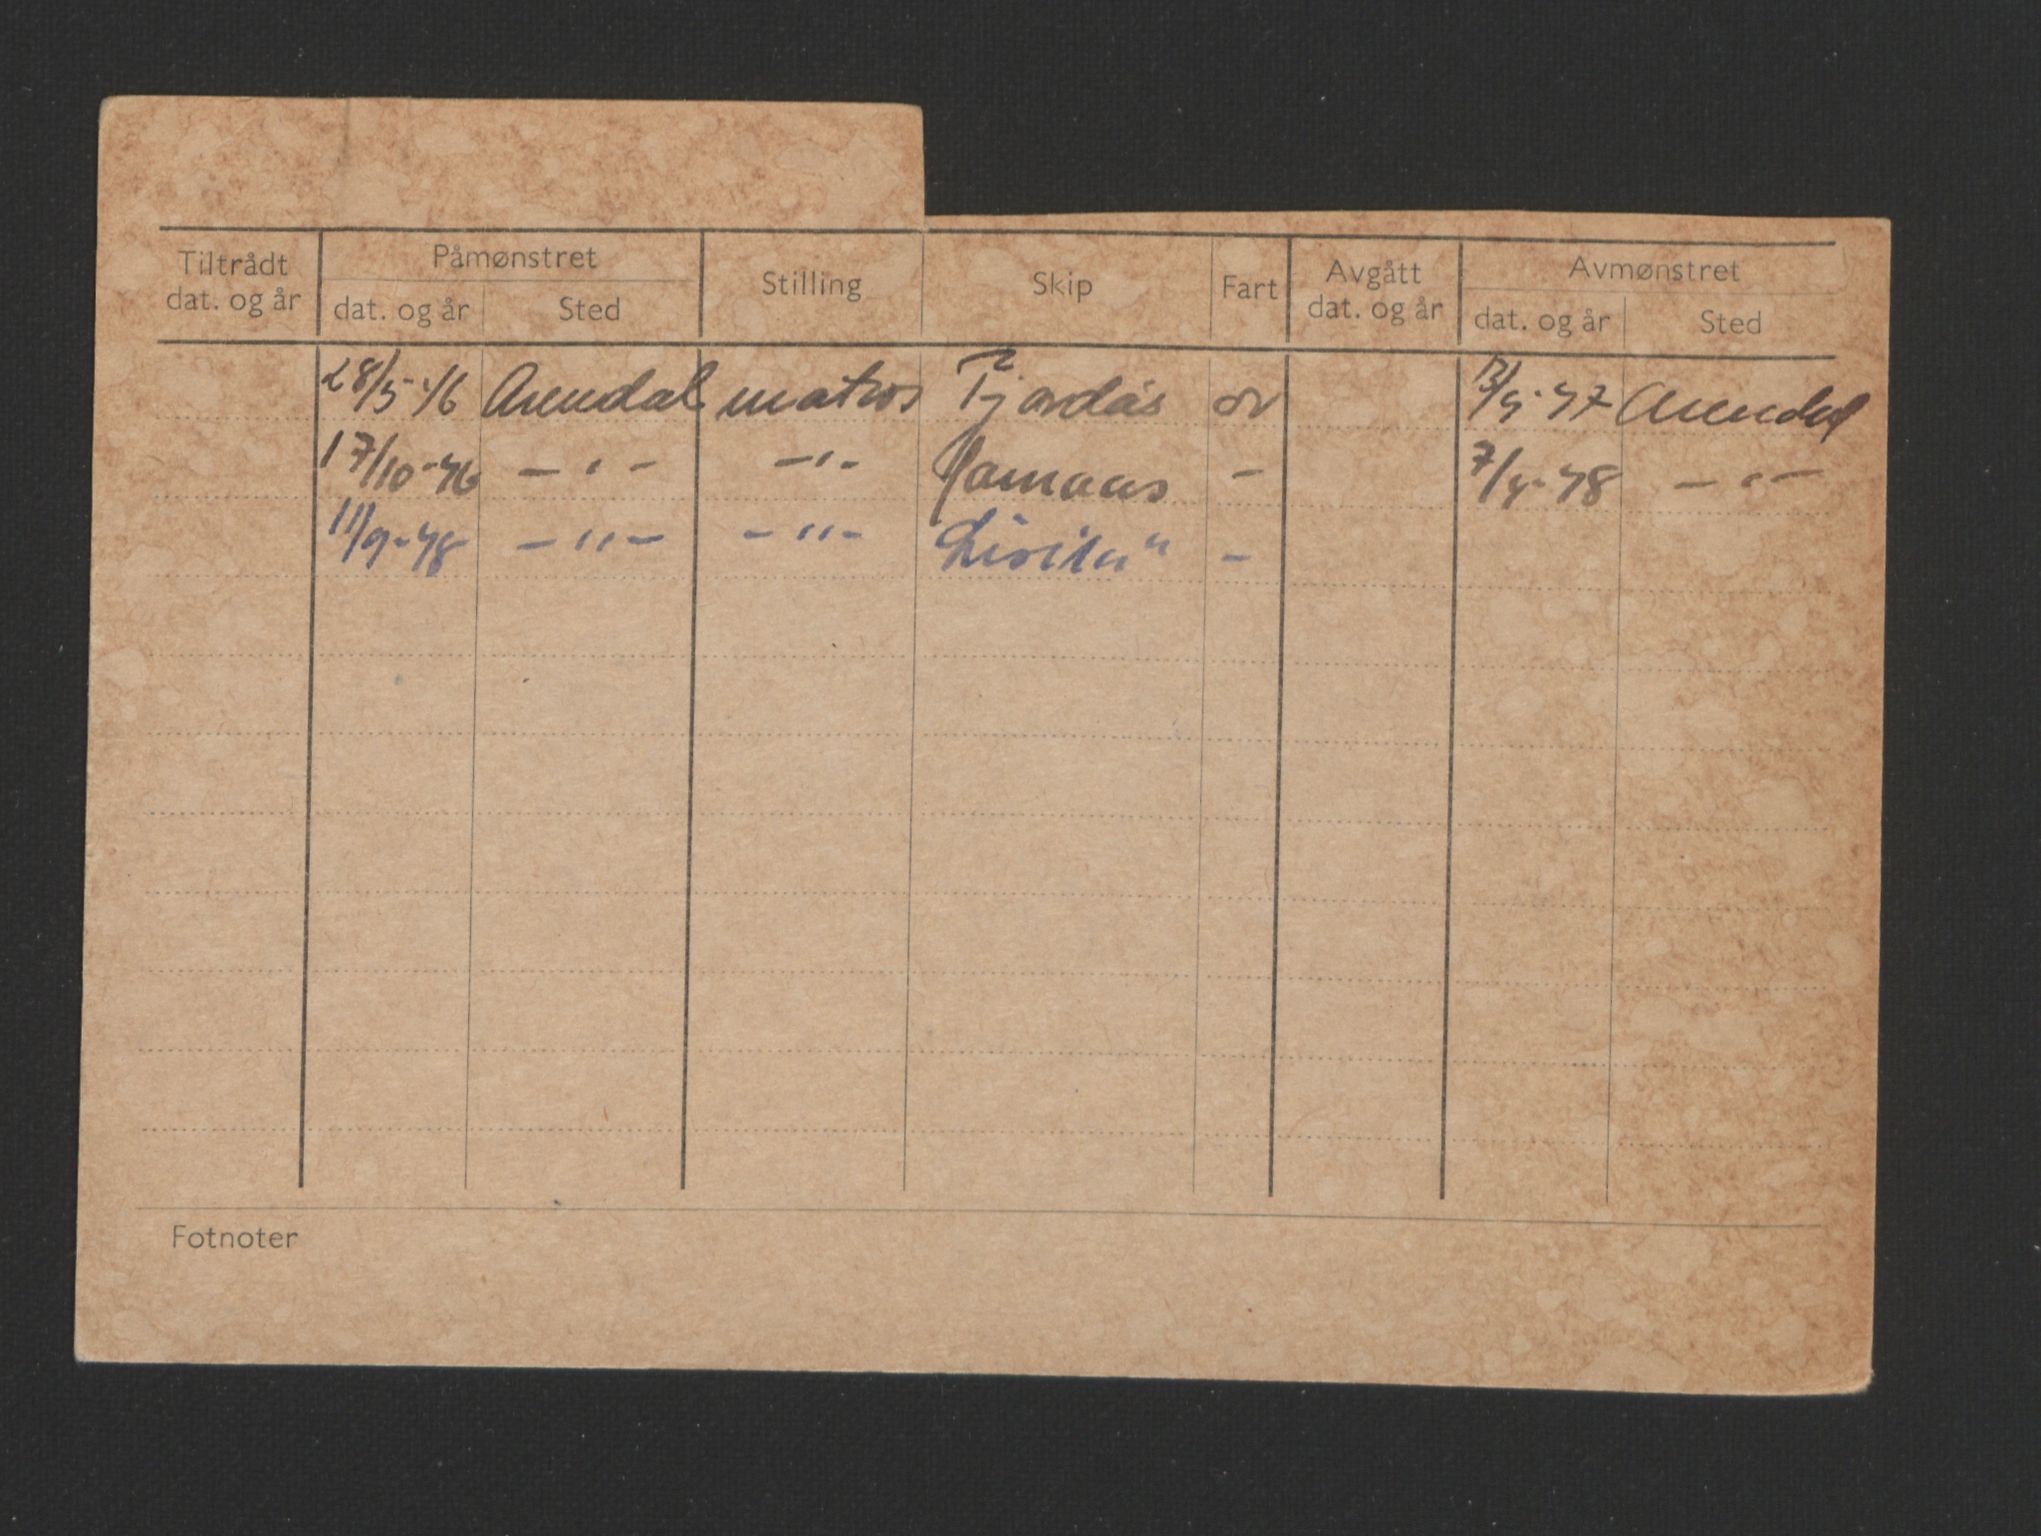 Tiltrådt dat. og år | Påmønstret dat. og år | Sted | Stilling | Skip | Fart | Avgått dat. og år | Avmønstret dat. og år | Sted
28/5-46 Arendal matros ov /4-47 Arendal
17/10-46 — " — — " — Jamaas - 7/4-48 — " —
11/9-48 — " — — " — -
Fotnoter